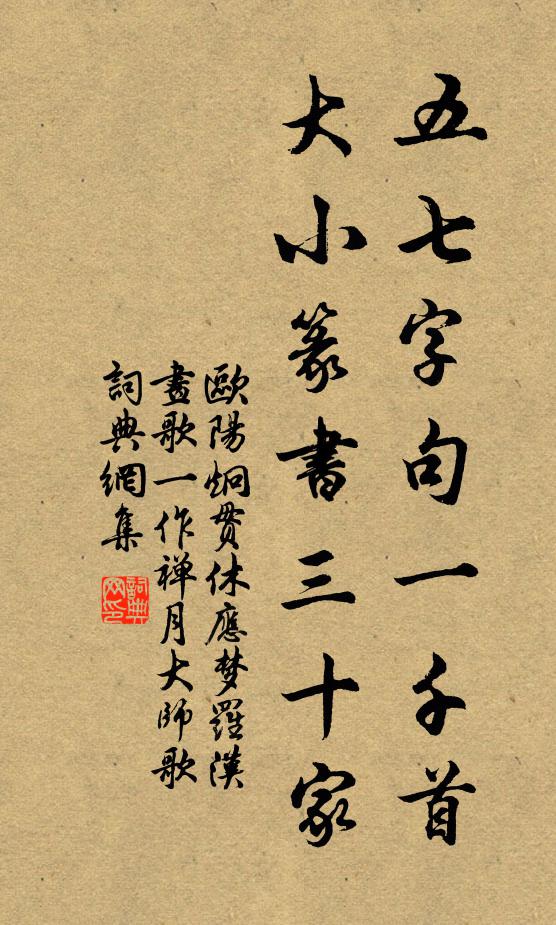 五七字句一千首
大小篆書三十家
歐陽炯貫休應梦羅漢
畫歌一作禅月大師歌
詞典網集
詞典
网印